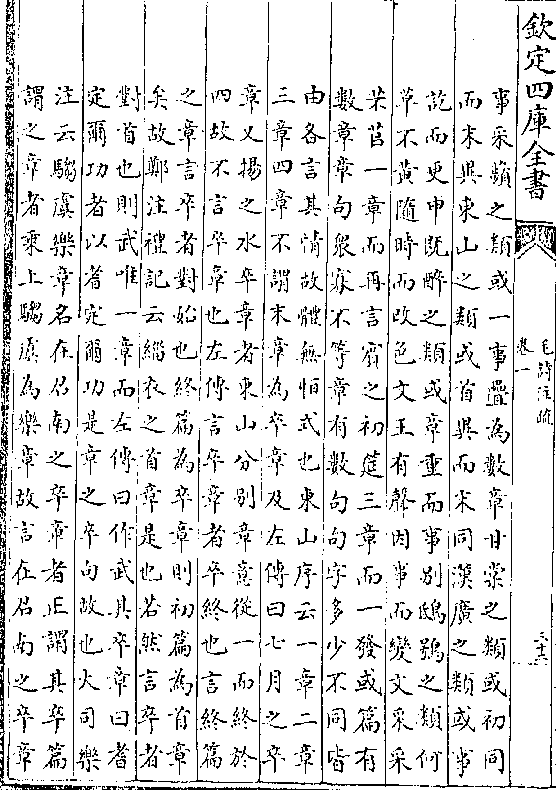 欽定四庫全書
毛詩注疏
卷一
事采蘋之類或一事疊為數章甘棠之類或初同
而末異東山之類或首異而末同漢廣之類或事
訖而更申既醉之類或章重而事別鴟鴞之類何
草不黄隨時而改色文王有聲因事而變文采采
芣苢一章而再言賓之初筵三章而一發或篇有
數章章句衆寡不等章有數句句字多少不同皆
由各言其情故體無恒式也東山序云一章二章
三章四章不謂末章為卒章及左傳曰七月之卒
章又揚之水卒章者東山分别章意從一而終於
四故不言卒章也左傳言卒章者卒終也言終篇
之章言卒者對始也終篇為卒章則初篇為首章
矣故鄭注禮記云緇衣之首章是也若然言卒者
對首也則武唯一章而左傳曰作武其卒章曰耆
定爾功者以耆定爾功是章之卒句故也大司樂
注云騶虞樂章名在召南之卒章者正謂其卒篇
謂之章者乘上騶虞為樂章故言在召南之卒章